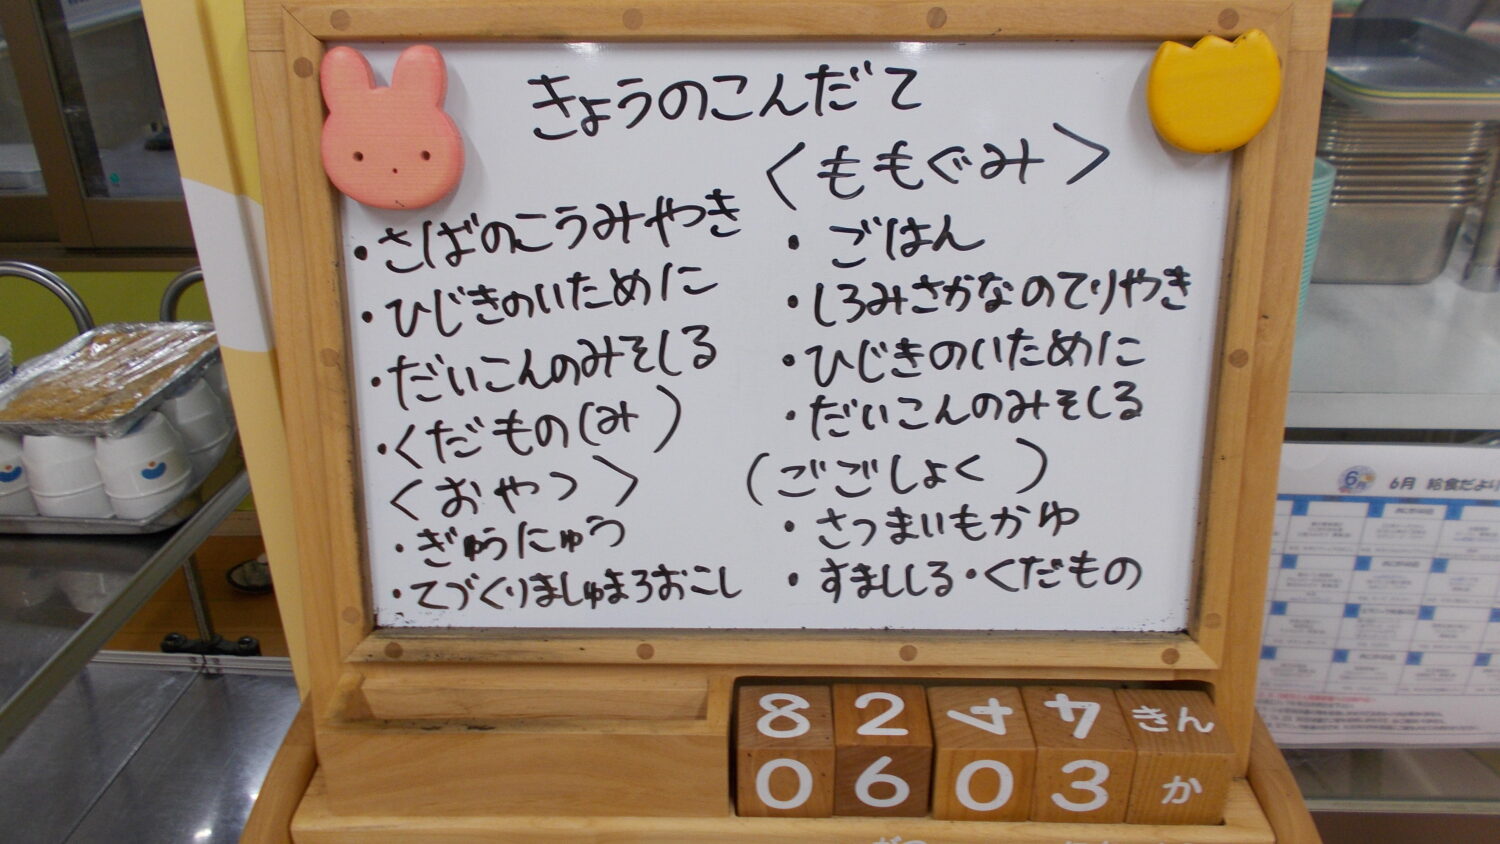 きょうのこんだて
・さばのこうみやき
・ひじきのいために
・だいこんのみそしる
・くだもの(み )
〈おやつ 〉
・ぎゅうにゅう
・てづくりましゅまろおこし
〈ももぐみ〉
・ごはん
・しろみさかなのてりやき
・ひじきのいために
・だいこんのみそしる
(ごごしょく )
・さつまいもかゆ
・すましじる・くだもの
8 2 4 4 きん
0 6 0 3 か
6月 6月 給食だより